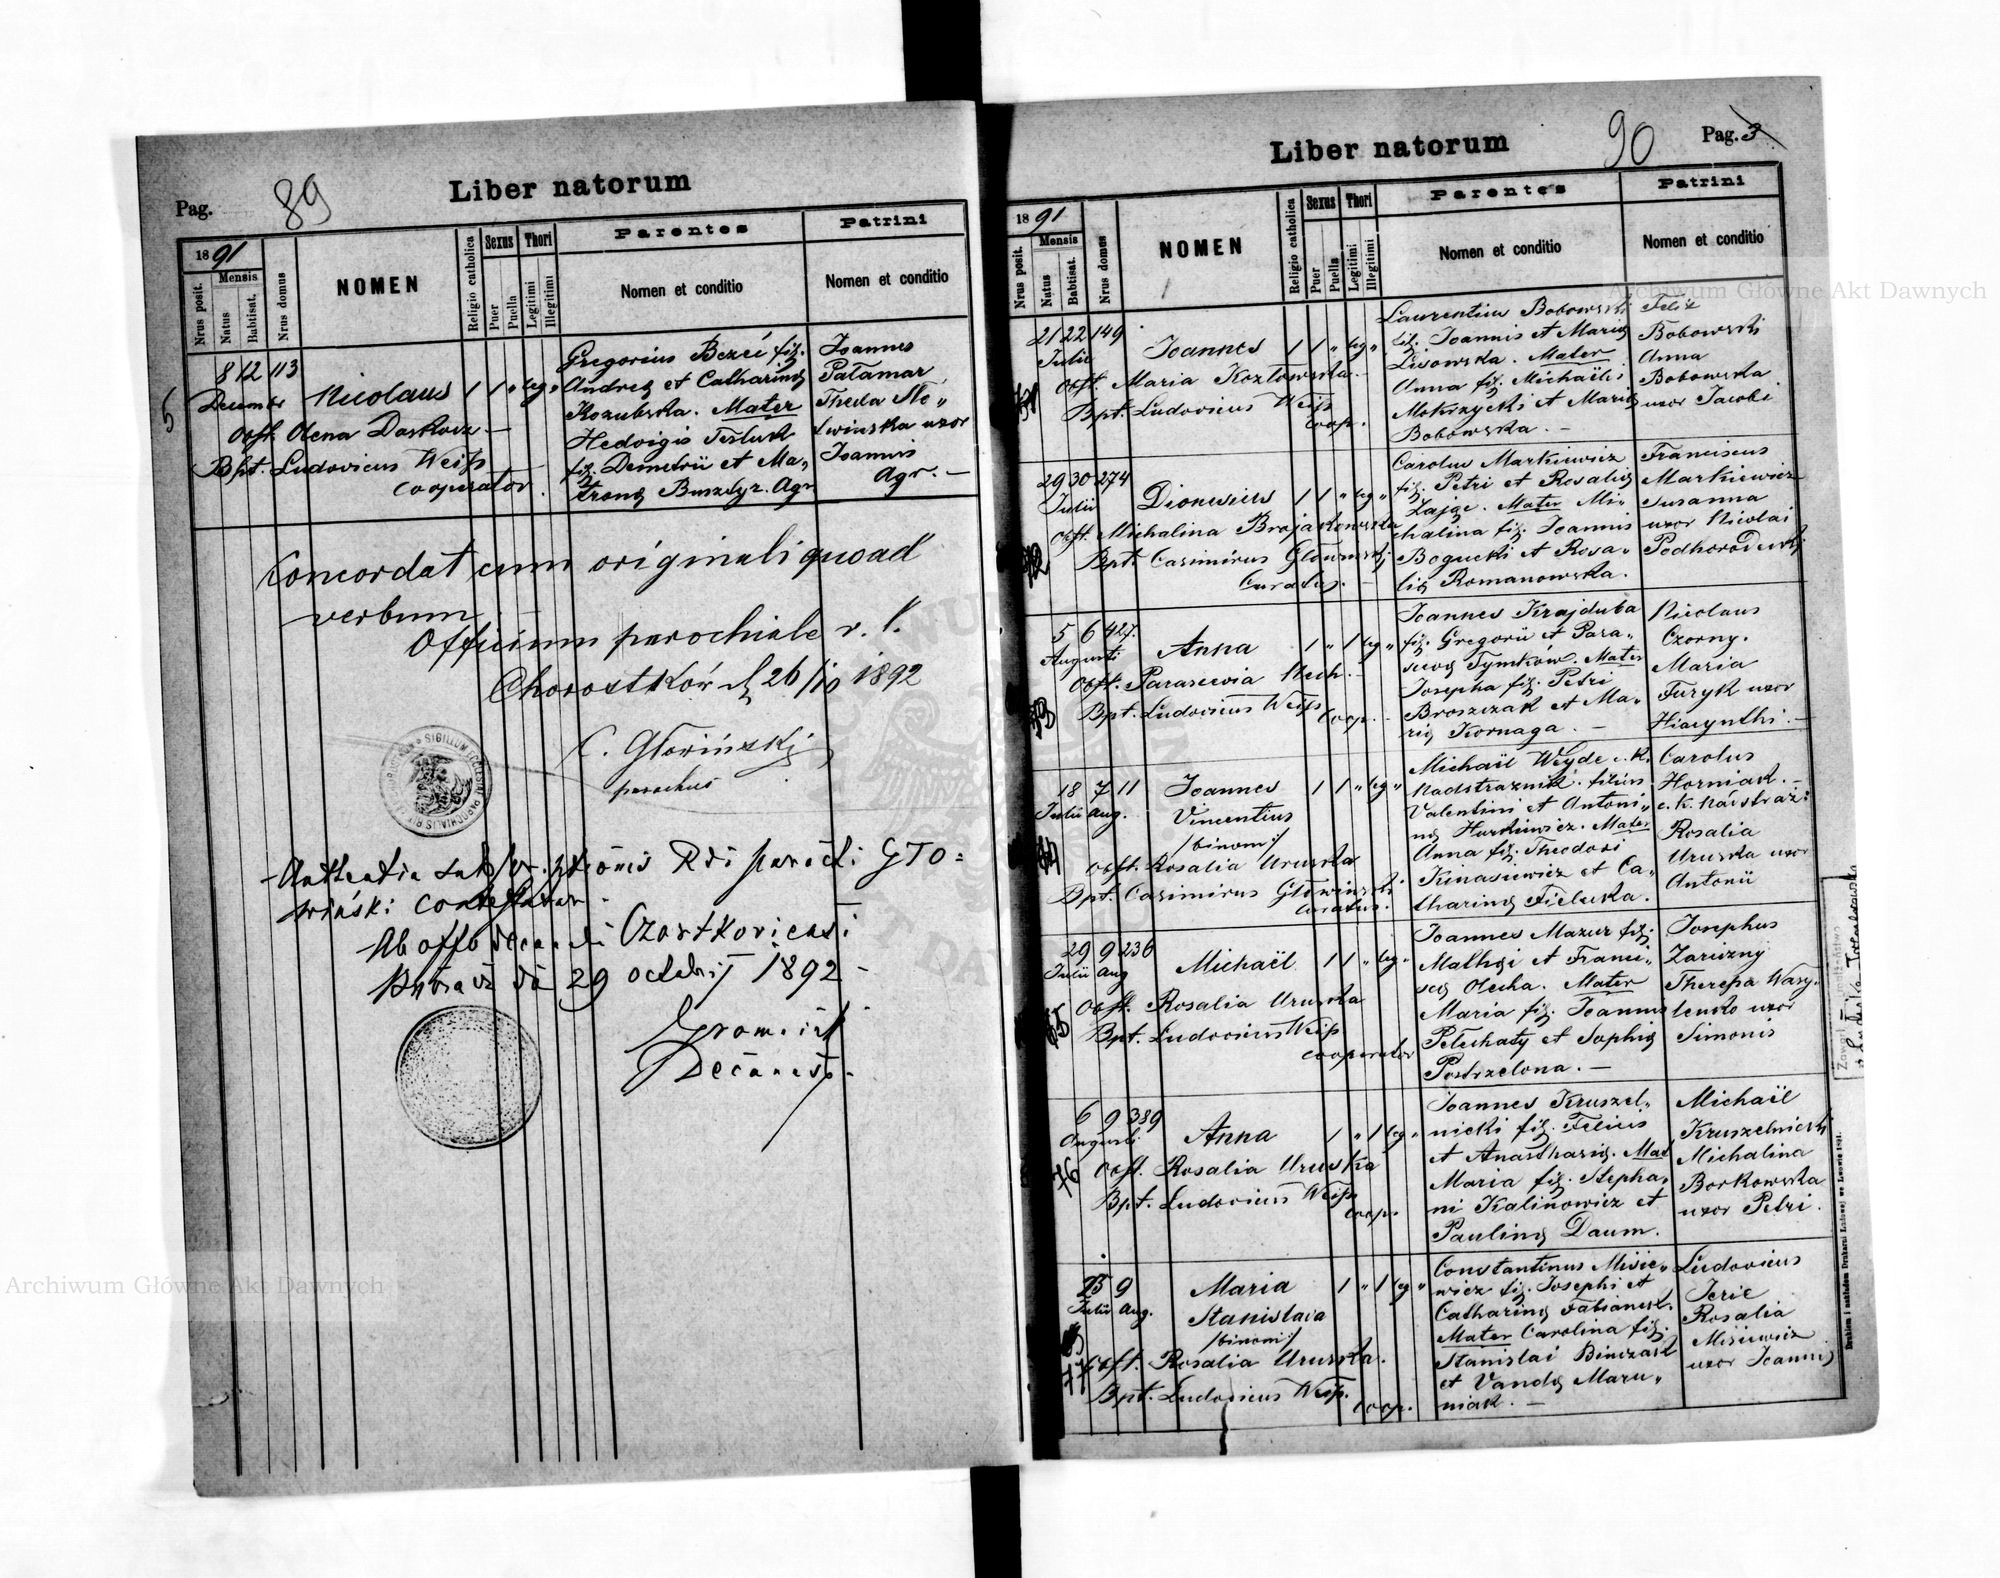 Pag. 89
Liber natorum
1891
Mensis
Nrus posit.
Natus
Babtisat.
Nrus domus
NOMEN
Religio catholica
Sexus
Puer
Puella
Thori
Legitimi
Illegitimi
Parentes
Nomen et conditio
Patrini
Nomen et conditio
5
8 12 113
Decembr Nicolaus 1 1 " leg "
Obst. Olena Daskocz —
Bpt. Ludovicus Weiß
Cooperator.
Gregorius Bezei fil.
Andreę et Catharinę
Kozubska. Mater
Hedvigis Tesluk
fil. Demetrii et Ma-
tronę Buszdyr. Agr
Joannes
Patamar
Thecla
uxor
Joannis
Agr. —
Concordat cum originali quoad
verbum. —
Officium parochiale r. l.
Chorostków d. 26/10 1892
C. Głowiński
parochus
SIGILLUM ECCLESIAE PAROCHIALIS RIT.
Rdi parochi Gło=
wiński
Ab offo decanali Czortkoviensi
29 octobris 1892 -
Decanus.
Liber natorum
90 Pag. 3
1891
Mensis
Nrus posit.
Natus
Babtisat.
Nrus domus
NOMEN
Religio catholica
Sexus
Puer
Puella
Thori
Legitimi
Illegitimi
Parentes
Nomen et conditio
Patrini
Nomen et conditio
21 22 149
Julii Joannes 1 1 " leg "
Obst. Maria Kozłowska. —
Bpt. Ludovicus Weiß
Coop.
Laurentius Bobowski
fil. Joannis et Marię
Lisowska. Mater
Anna fil. Michaëlis
Mokrzycki et Marię
Bobowska. —
Felix
Bobowski
Anna
Bobowska
uxor Jacobi
29 30 274
Julii Dionisius 1 1 " leg "
Obst. Michalina Brajakowska
Bpt. Casimirus Głowiński
Curatus. —
Carolus Markiewicz
fil. Petri et Rosalię
Zając. Mater Mi-
chalina fil. Joannis
Bogucki et Rosa-
lię Romanowska.
Franciscus
Markiewicz
Susanna
uxor Nicolai
Podhorodecki
5 6 427.
Augusti Anna 1 " 1 leg "
Obst. Parascevia Nech. —
Bpt. Ludovicus Weiß
Coop. -
Joannes Krajduba
fil. Gregorii et Para-
scevę Tymków. Mater
Josepha fil. Petri
Broszczak et Ma-
rię Kornaga. —
Nicolaus
Czorny.
Maria
Furyk uxor
Hiacynthi. —
18 7 11
Julii Aug. Joannes 1 1 " leg "
Vincentius
/binom:/
Obst. Rosalia Uruska
Bpt. Casimirus Głowiński
Curatus.
Michaël Weyde c. k.
Nadstrażnik filius
Valentini et Antoni-
nę Hurkiewicz. Mater
Anna fil. Theodosi
Kinasiewicz et Ca-
tharinę Fieluka.
Carolus
Horniak. —
c. k. Nadstraż:
Rosalia
Uruska uxor
Antonii
29 9 236
Julii Aug Michaël. 1 1 " leg "
Obst. Rosalia Uruska
Bpt. Ludovicus Weiß
Cooperator
Joannes Mazur fil.
Mathęi et Franci-
scę Olecha. Mater
Maria fil. Joannis
Petechaty et Sophię
Postrzelona. —
Josephus
Zariczny
Theresa Wasy-
lenko uxor
Simonis
76
6 9 389
Augusti Anna 1 " 1 leg "
Obst. Rosalia Uruska
Bpt. Ludovicus Weiß
Coop.
Joannes Kruszel-
nicki fil. Felicis
et Anasthasię. Mat
Maria fil. Stepha-
ni Kalinowicz et
Paulinę Daum.
Michaël
Kruszelnicki
Michalina
Borkowska
uxor Petri.
25 9
Julii Aug. Maria 1 " 1 leg "
Stanislava
/binom:/
Obst. Rosalia Uruska.
Bpt. Ludovicus Weiß.
Coop.
Constantinus Misie-
wicz fil. Josephi et
Catharinę Fabianek.
Mater Carolina fil.
Stanislai Binczak
et Vandę Maru-
niak. —
Ludovicus
Jeric
Rosalia
Misiewicz
uxor Joannis
Drukiem i nakładem Drukarni Ludowej we Lwowie 1891.
Archiwum Główne Akt Dawnych
Archiwum Główne Akt Dawnych